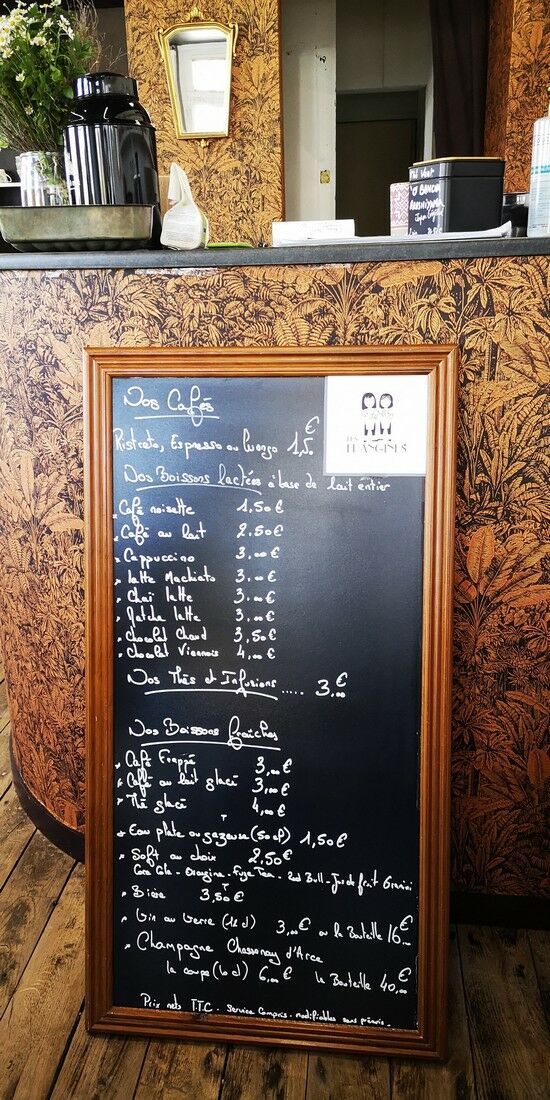 Thé Vert
LES
FLANGINES
Nos Cafés
Ristreto, Espresso ou lungo 1,5.€
Nos Boissons lactées à base de lait entier
Café noisette 1,50€
Café au lait 2.50€
Cappuccino 3,00€
Latte Machiato 3,00€
Chaï latte 3,00€
Matcha latte 3,00€
Chocolat Chaud 3,50€
Chocolat Viennois 4,00€
Nos Thés et Infusions ..... 3.00€
Nos Boissons fraîches
Café Frappé 3,00€
Café au lait glacé 3,00€
Thé glacé 4,00€
Eau plate ou gazeuse (50cl) 1,50€
Soft au choix 2,50€
Coca Cola - Orangina - Fuze Tea - Red Bull - Jus de fruit Granini
Bière 3,50€
Vin au verre (12cl) 3,00€ ou la Bouteille 16€
Champagne Chassenay d'Arce
la coupe (10cl) 6,00€ la Bouteille 40,00€
Prix nets TTC - Service Compris - modifiables sans préavis.